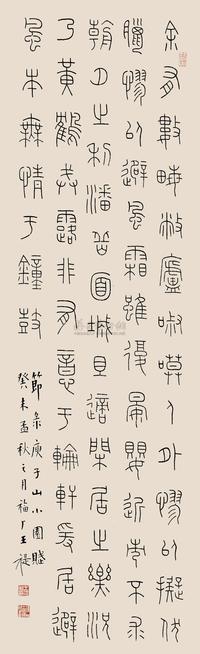 余有數畝敝廬寂嗼人外憀以擬伏
臘憀以避風霜雖復晏嬰近市不求
朝夕之利潘岳面城且適閑居之樂況
乃黃鶴戒露非有意于輪軒爰居避
風本無情于鐘鼓
節彔庾子山小園賦
癸未孟秋之月福厂王禔